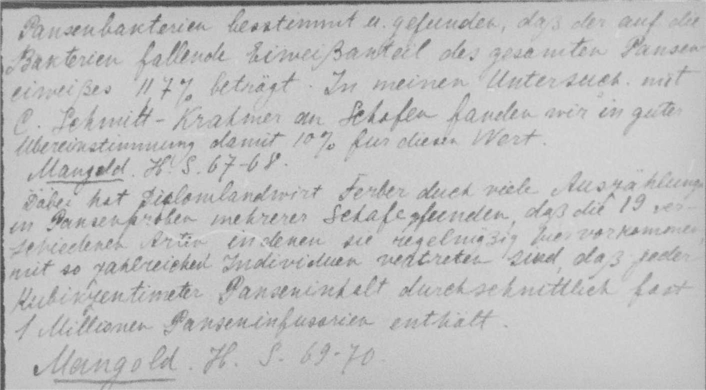 Pansenbakterien besstimmt u. gefunden, daß der auf die
Bakterien fallende Eiweißanteil des gesamten Pansen-
eiweißes 11 7% beträgt. In meinen Untersuch. mit
C. Schmitt-Krahmer an Schafen fanden wir in guter
Übereinstimmung damit 10% für diesen Wert.
Mangold. H. S. 67-68.
Dabei hat Diplomlandwirt Ferber duch viele Auszählung
in Pansenproben mehrerer Schafe gefunden, daß die 19 ver-
schiedenen Arten in denen sie regelmäßig hier vorkommen,
mit so zahlreichen Individuen vertreten sind, daß jeder
Kubikzentimeter Panseninhalt durchschnittlich fast
1 Millionen Panseninfusorien enthält.
Mangold. H. S. 69-70.